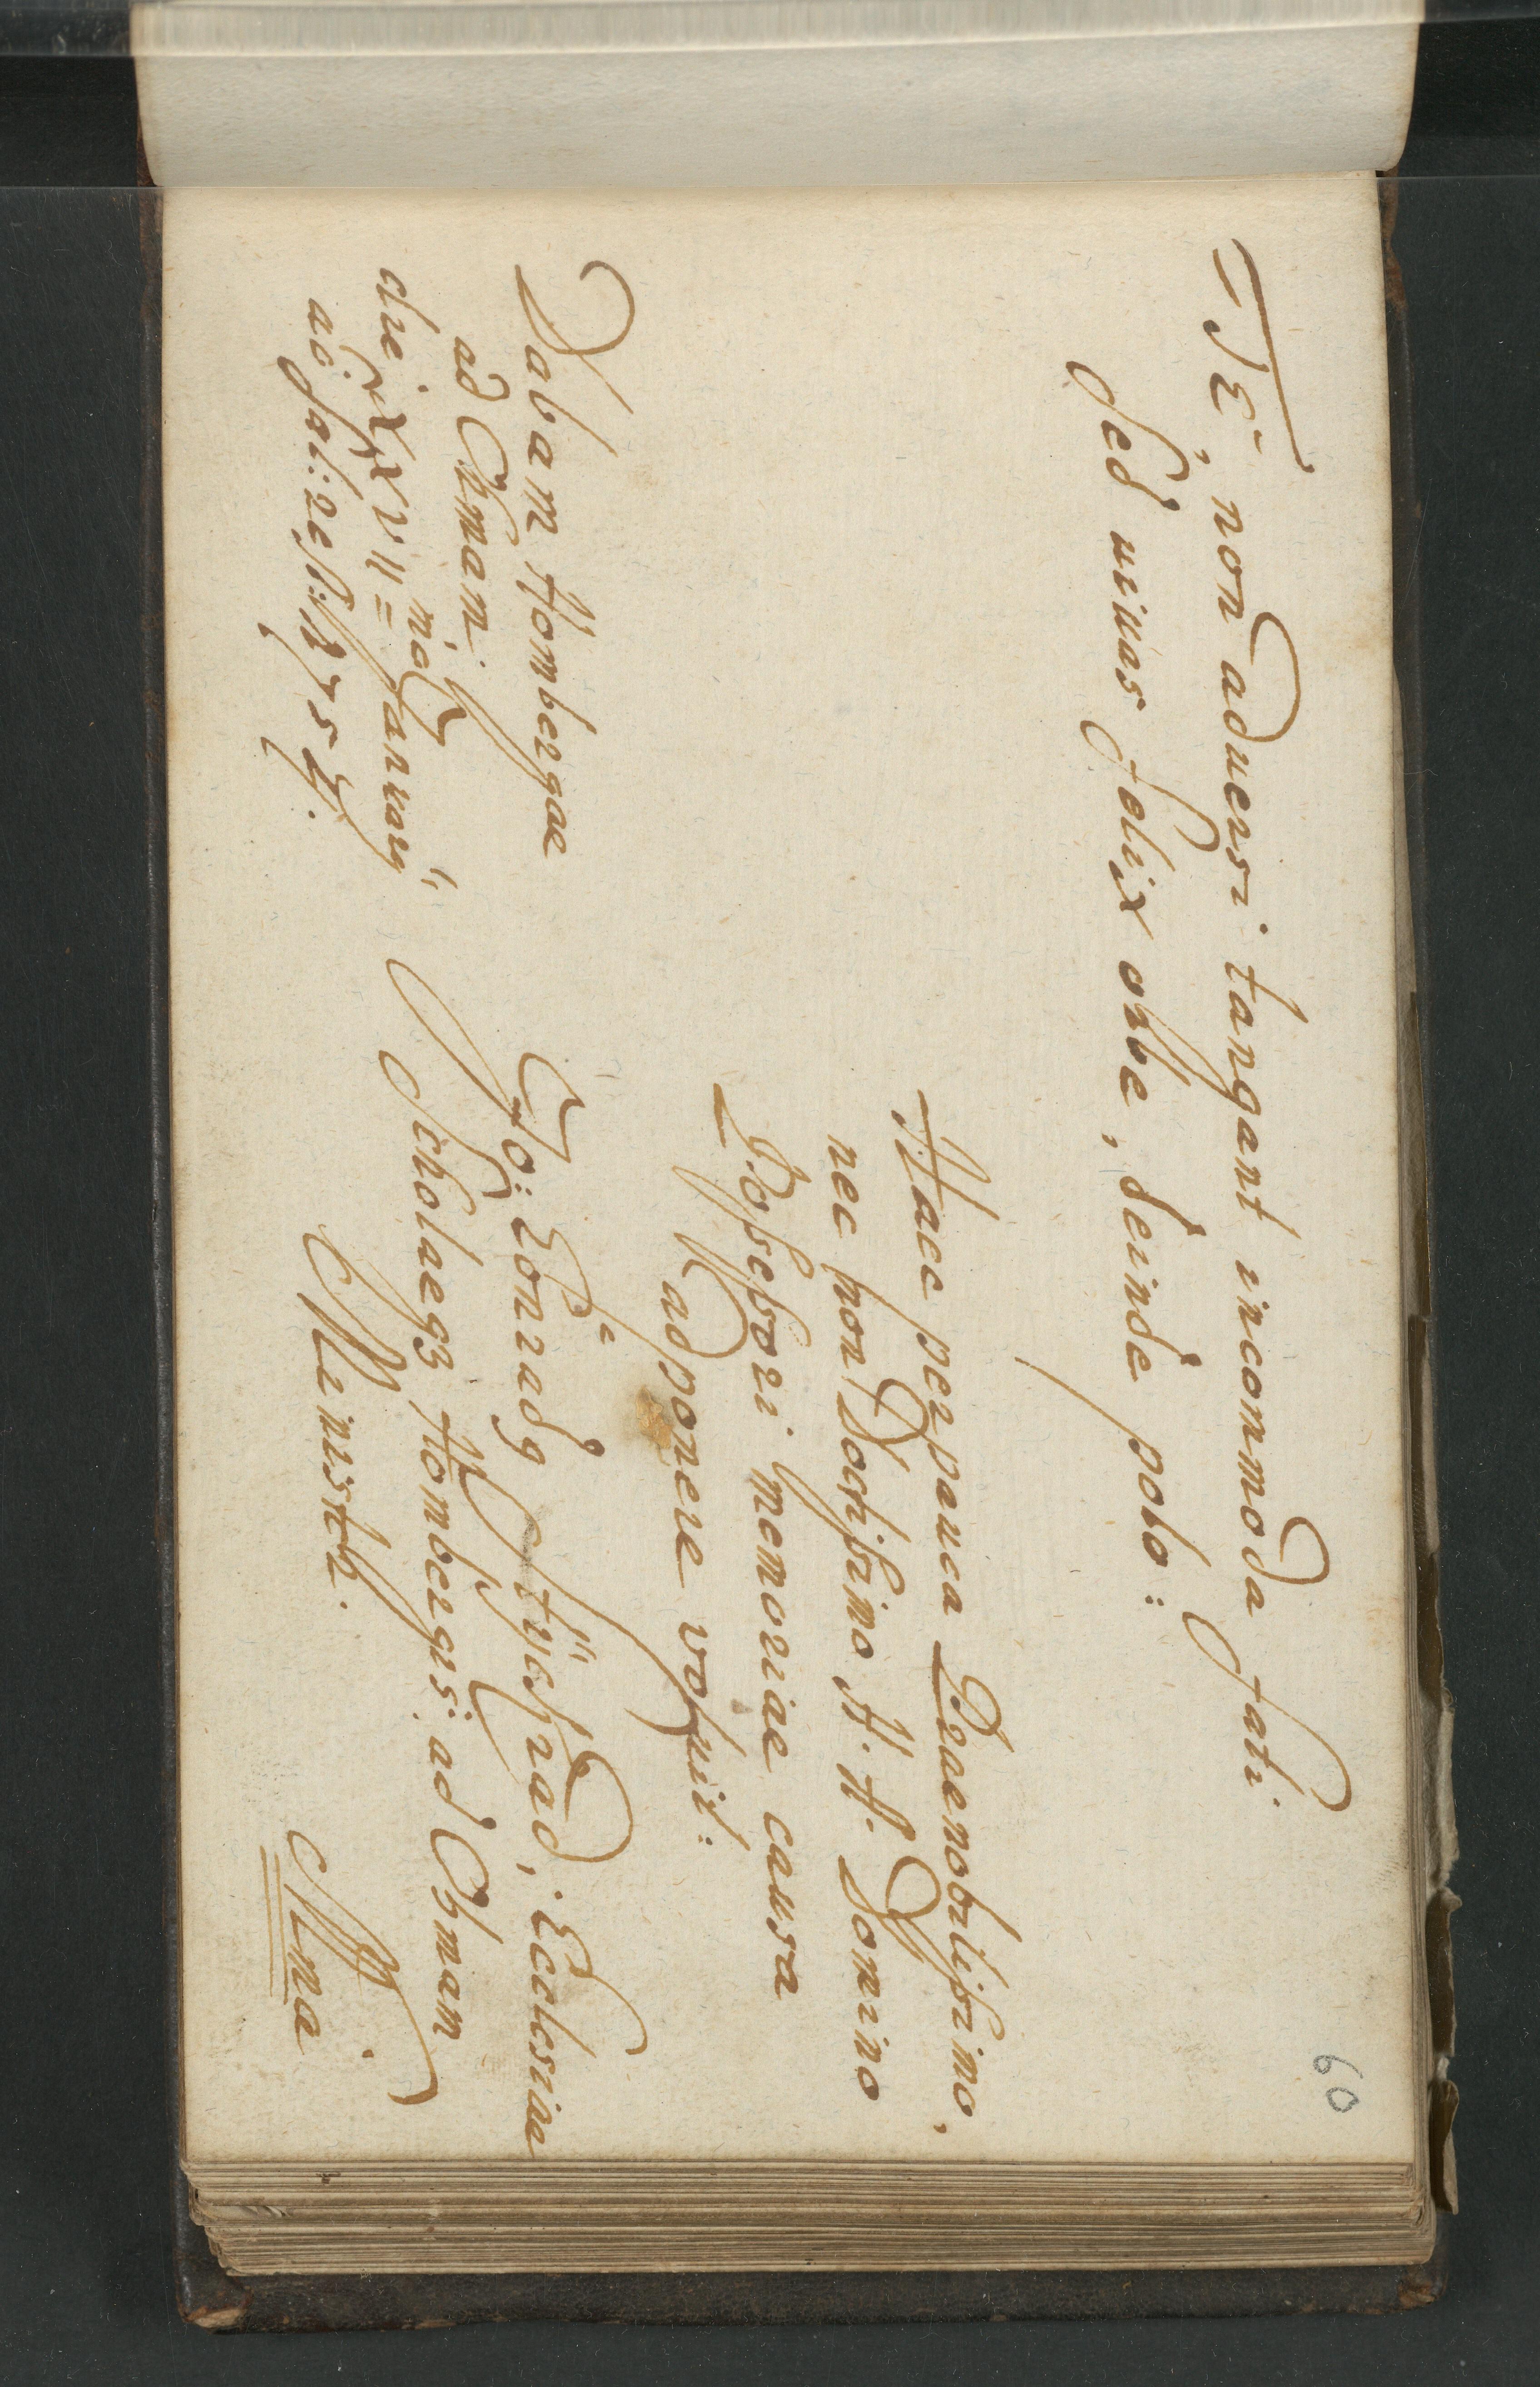 60
TE, non aduersi tangant incommoda fati.
Sed uiuas felix orbe, deinde polo:
Haec perpauca Praenobilissimo,
nec non Doctissimo H. H. Domino
Possessori memoriae causa
adponere voluit:
Jo: Conradg Hÿchrad, Ecclesiae
Scholaeqз Hombergs: ad Ohmam
Minist.
Mma.
Dabam Hombergae
ad Ohmam.
die XXVII = ma Januarÿ
ao.